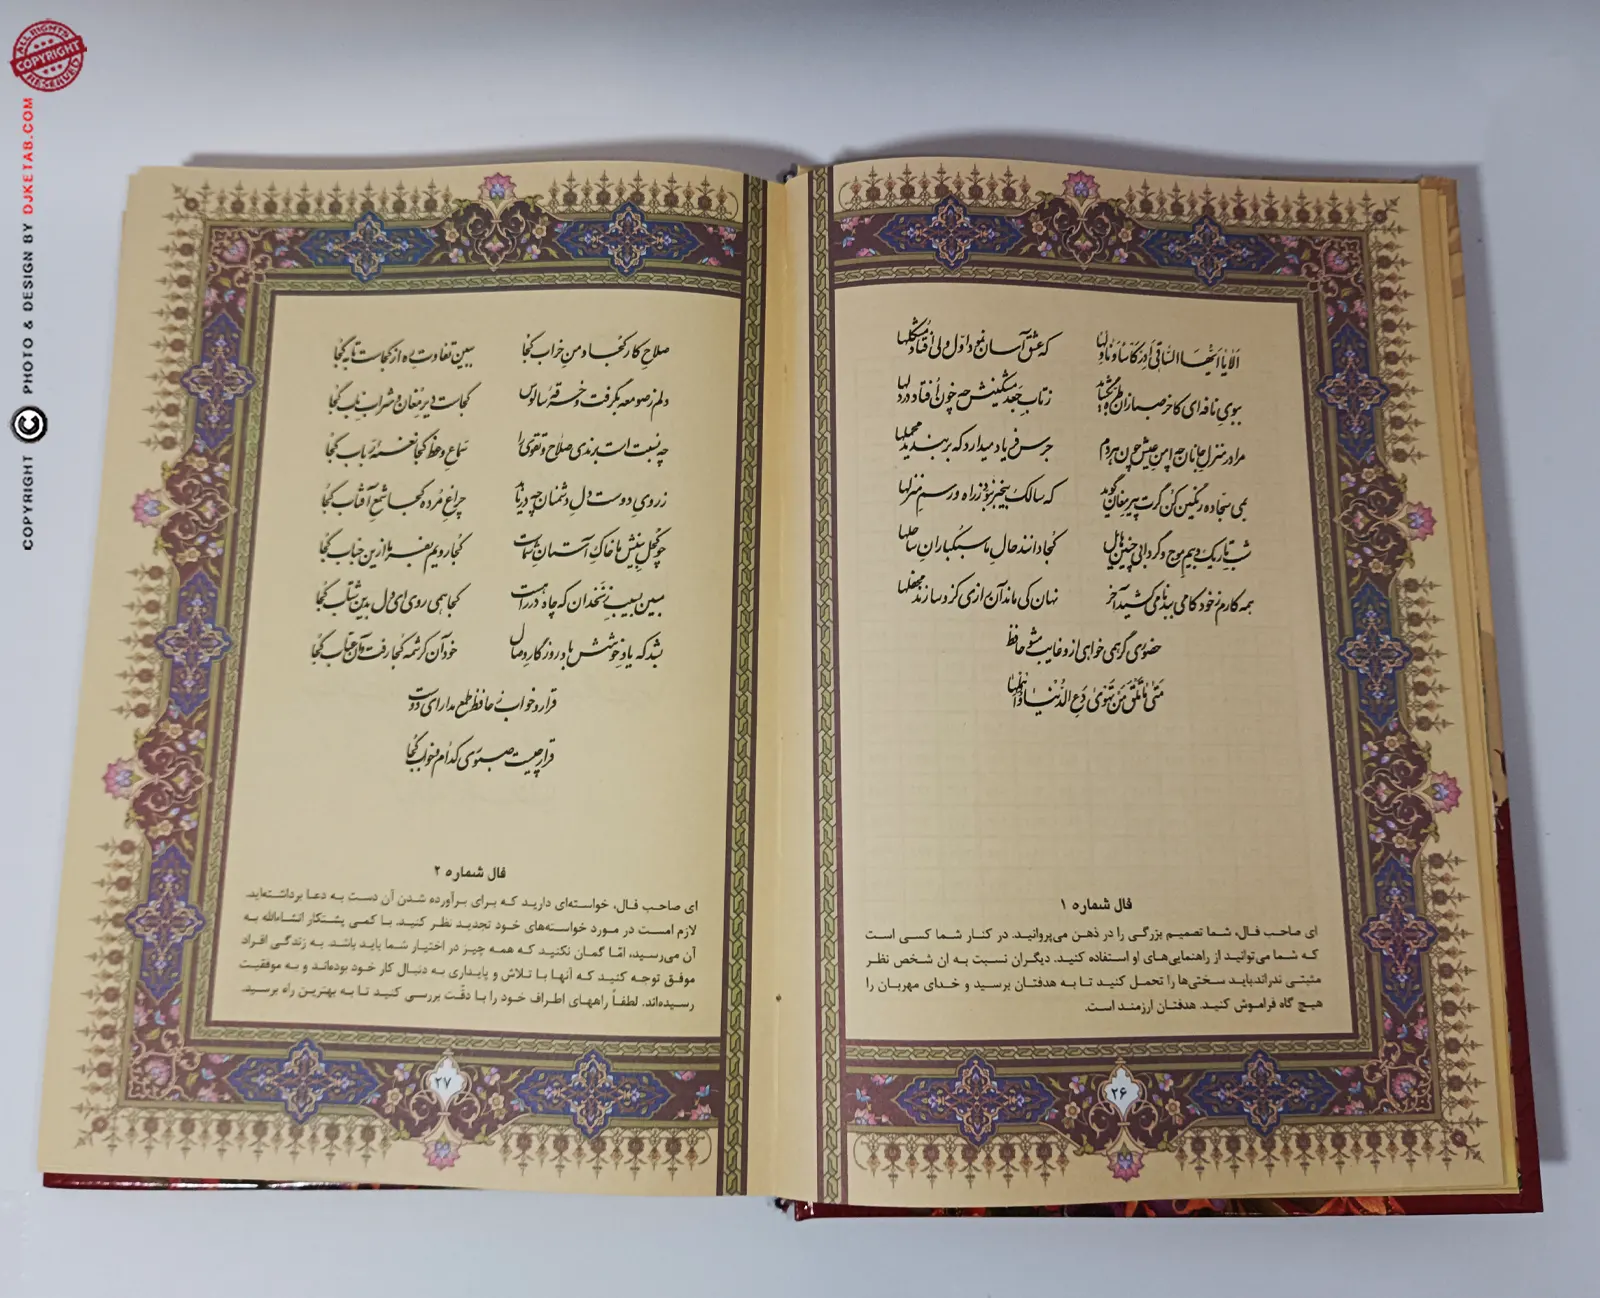 ALL RIGHTS
COPYRIGHT
RESERVED
COPYRIGHT © PHOTO & DESIGN BY DJKETAB.COM
اَلا یا اَیُّهَا السّاقی اَدِر کَاساً وَ ناوِلها که عشق آسان نمود اوّل ولی اُفتاد مُشکلها
ببویِ نافه‌ای کاخر صبا زان طرّه بگشاید ز تابِ جَعدِ مشکینش چه خون اُفتاد در دلها
مرا در منزلِ جانان چه امنِ عیش چون هر دم جرس فریاد میدارد که بربندید محملها
بمی سجّاده رنگین کن گرت پیرِ مغان گوید که سالک بیخبر نبود ز راه و رسمِ منزلها
شبِ تاریک و بیمِ موج و گردابی چنین هایل کجا دانند حالِ ما سبکبارانِ ساحلها
همه کارم ز خود کامی ببدنامی کشید آخر نهان کی ماند آن رازی کزو سازند محفلها
حضوری گر همی خواهی ازو غایب مشو حافظ
مَتیٰ ما تَلقَ مَن تَهویٰ دَعِ الدُّنیٰا وَ اَهمِلها
فال شماره ۱
ای صاحب فال، شما تصمیم بزرگی را در ذهن می‌پروانید. در کنار شما کسی است
که شما می‌توانید از راهنمایی‌های او استفاده کنید. دیگران نسبت به آن شخص نظر
مثبتی ندراند.باید سختی‌ها را تحمل کنید تا به هدفتان برسید و خدای مهربان را
هیچ گاه فراموش کنید. هدفتان ارزمند است.
۲۶
صلاحِ کار کجا و منِ خراب کجا ببین تفاوتِ ره از کجاست تا به کجا
دلم ز صومعه بگرفت و خرقهٔ سالوس کجاست دیرِ مُغان و شرابِ ناب کجا
چه نسبت است برندی صلاح و تقوی را سماعِ وعظ کجا نغمهٔ رَباب کجا
ز رویِ دوست دلِ دشمنان چه دریابد چراغِ مُرده کجا شمعِ آفتاب کجا
چو کُحلِ بینشِ ما خاکِ آستانِ شماست کجا رویم بفرما ازین جناب کجا
مبین بسیبِ زنخدان که چاه در راهست کجا همی روی ای دل بدین شتاب کجا
بشد که یادِ خوشش باد روزگارِ وصال خود آن کرشمه کجا رفت و آن عتاب کجا
قرار و خواب ز حافظ طمع مدار ای دوست
قرار چیست صبوری کدام و خواب کجا
فال شماره ۲
ای صاحب فال، خواسته‌ای دارید که برای برآورده شدن آن دست به دعا برداشته‌اید.
لازم است در مورد خواسته‌های خود تجدید نظر کنید. با کمی پشتکار انشاءالله به
آن می‌رسید، امّا گمان نکنید که همه چیز در اختیار شما باید باشد. به زندگی افراد
موفق توجه کنید که آنها با تلاش و پایداری به دنبال کار خود بوده‌اند و به موفقیت
رسیده‌اند. لطفاً راههای اطراف خود را با دقّت بررسی کنید تا به بهترین راه برسید.
۲۷